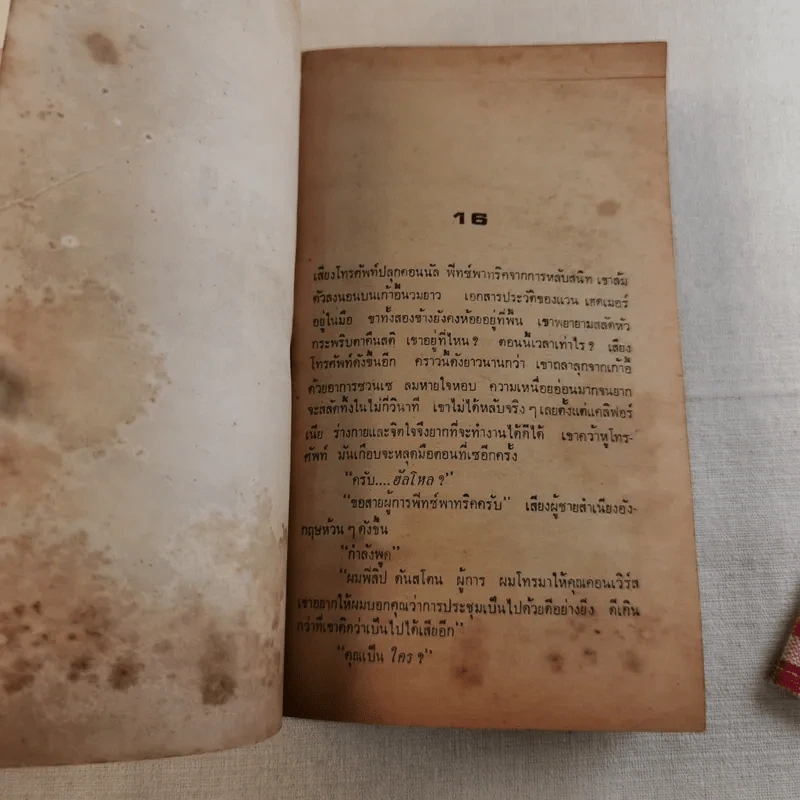 16
เสียงโทรศัพท์ปลุกดอนนัล พีทซ์พาทริคจากการหลับสนิท เขาล้ม
ตัวลงนอนบนเก้าอี้นวมยาว เอกสารประวัติของแวน เฮดเมอร์
อยู่ในมือ ขาทั้งสองข้างยังคงห้อยอยู่ที่พื้น เขาพยายามสลัดหัว
กระพริบตาคืนสติ เขาอยู่ที่ไหน ? ตอนนี้เวลาเท่าไร ? เสียง
โทรศัพท์ดังขึ้นอีก คราวนี้ดังยาวนานกว่า เขาถลาลุกจากเก้าอี้
ด้วยอาการซวนเซ ลมหายใจหอบ ความเหนื่อยอ่อนมากจนยาก
จะสลัดทิ้งในไม่กี่วินาที เขาไม่ได้หลับจริง ๆ เลยตั้งแต่แคลิฟอร์
เนีย ร่างกายและจิตใจจึงยากที่จะทำงานได้ดีได้ เขาคว้าหูโทร-
ศัพท์ มันเกือบจะหลุดมือตอนที่เซอีกครั้ง
“ครับ....ฮัลโหล ?”
“ขอสายผู้การพีทซ์พาทริคครับ” เสียงผู้ชายสำเนียงอัง-
กฤษห้วน ๆ ดังขึ้น
“กำลังพูด”
“ผมพีลิป ดันสโตน ผู้การ ผมโทรมาให้คุณคอนเวิร์ส
เขาอยากให้ผมบอกคุณว่าการประชุมเป็นไปด้วยดีอย่างยิ่ง ดีเกิน
กว่าที่เขาคิดว่าเป็นไปได้เสียอีก”
“คุณเป็น ใคร ?”